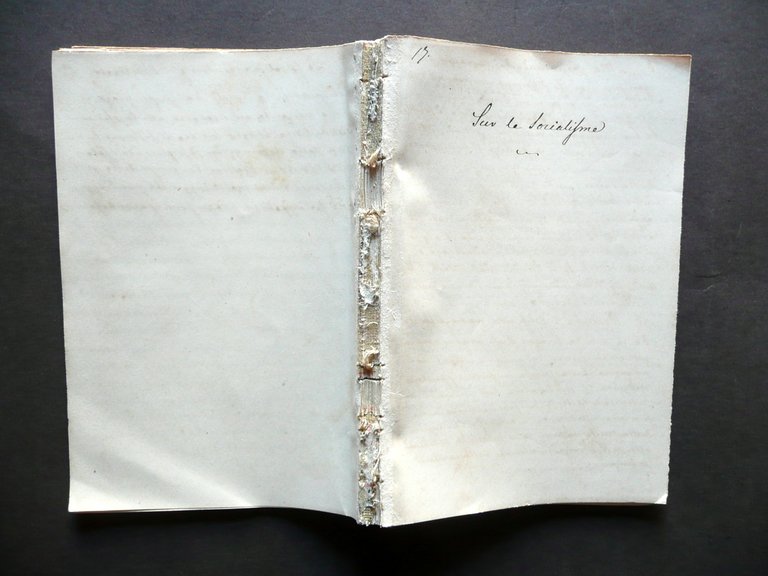 17.
Sur le Socialisme